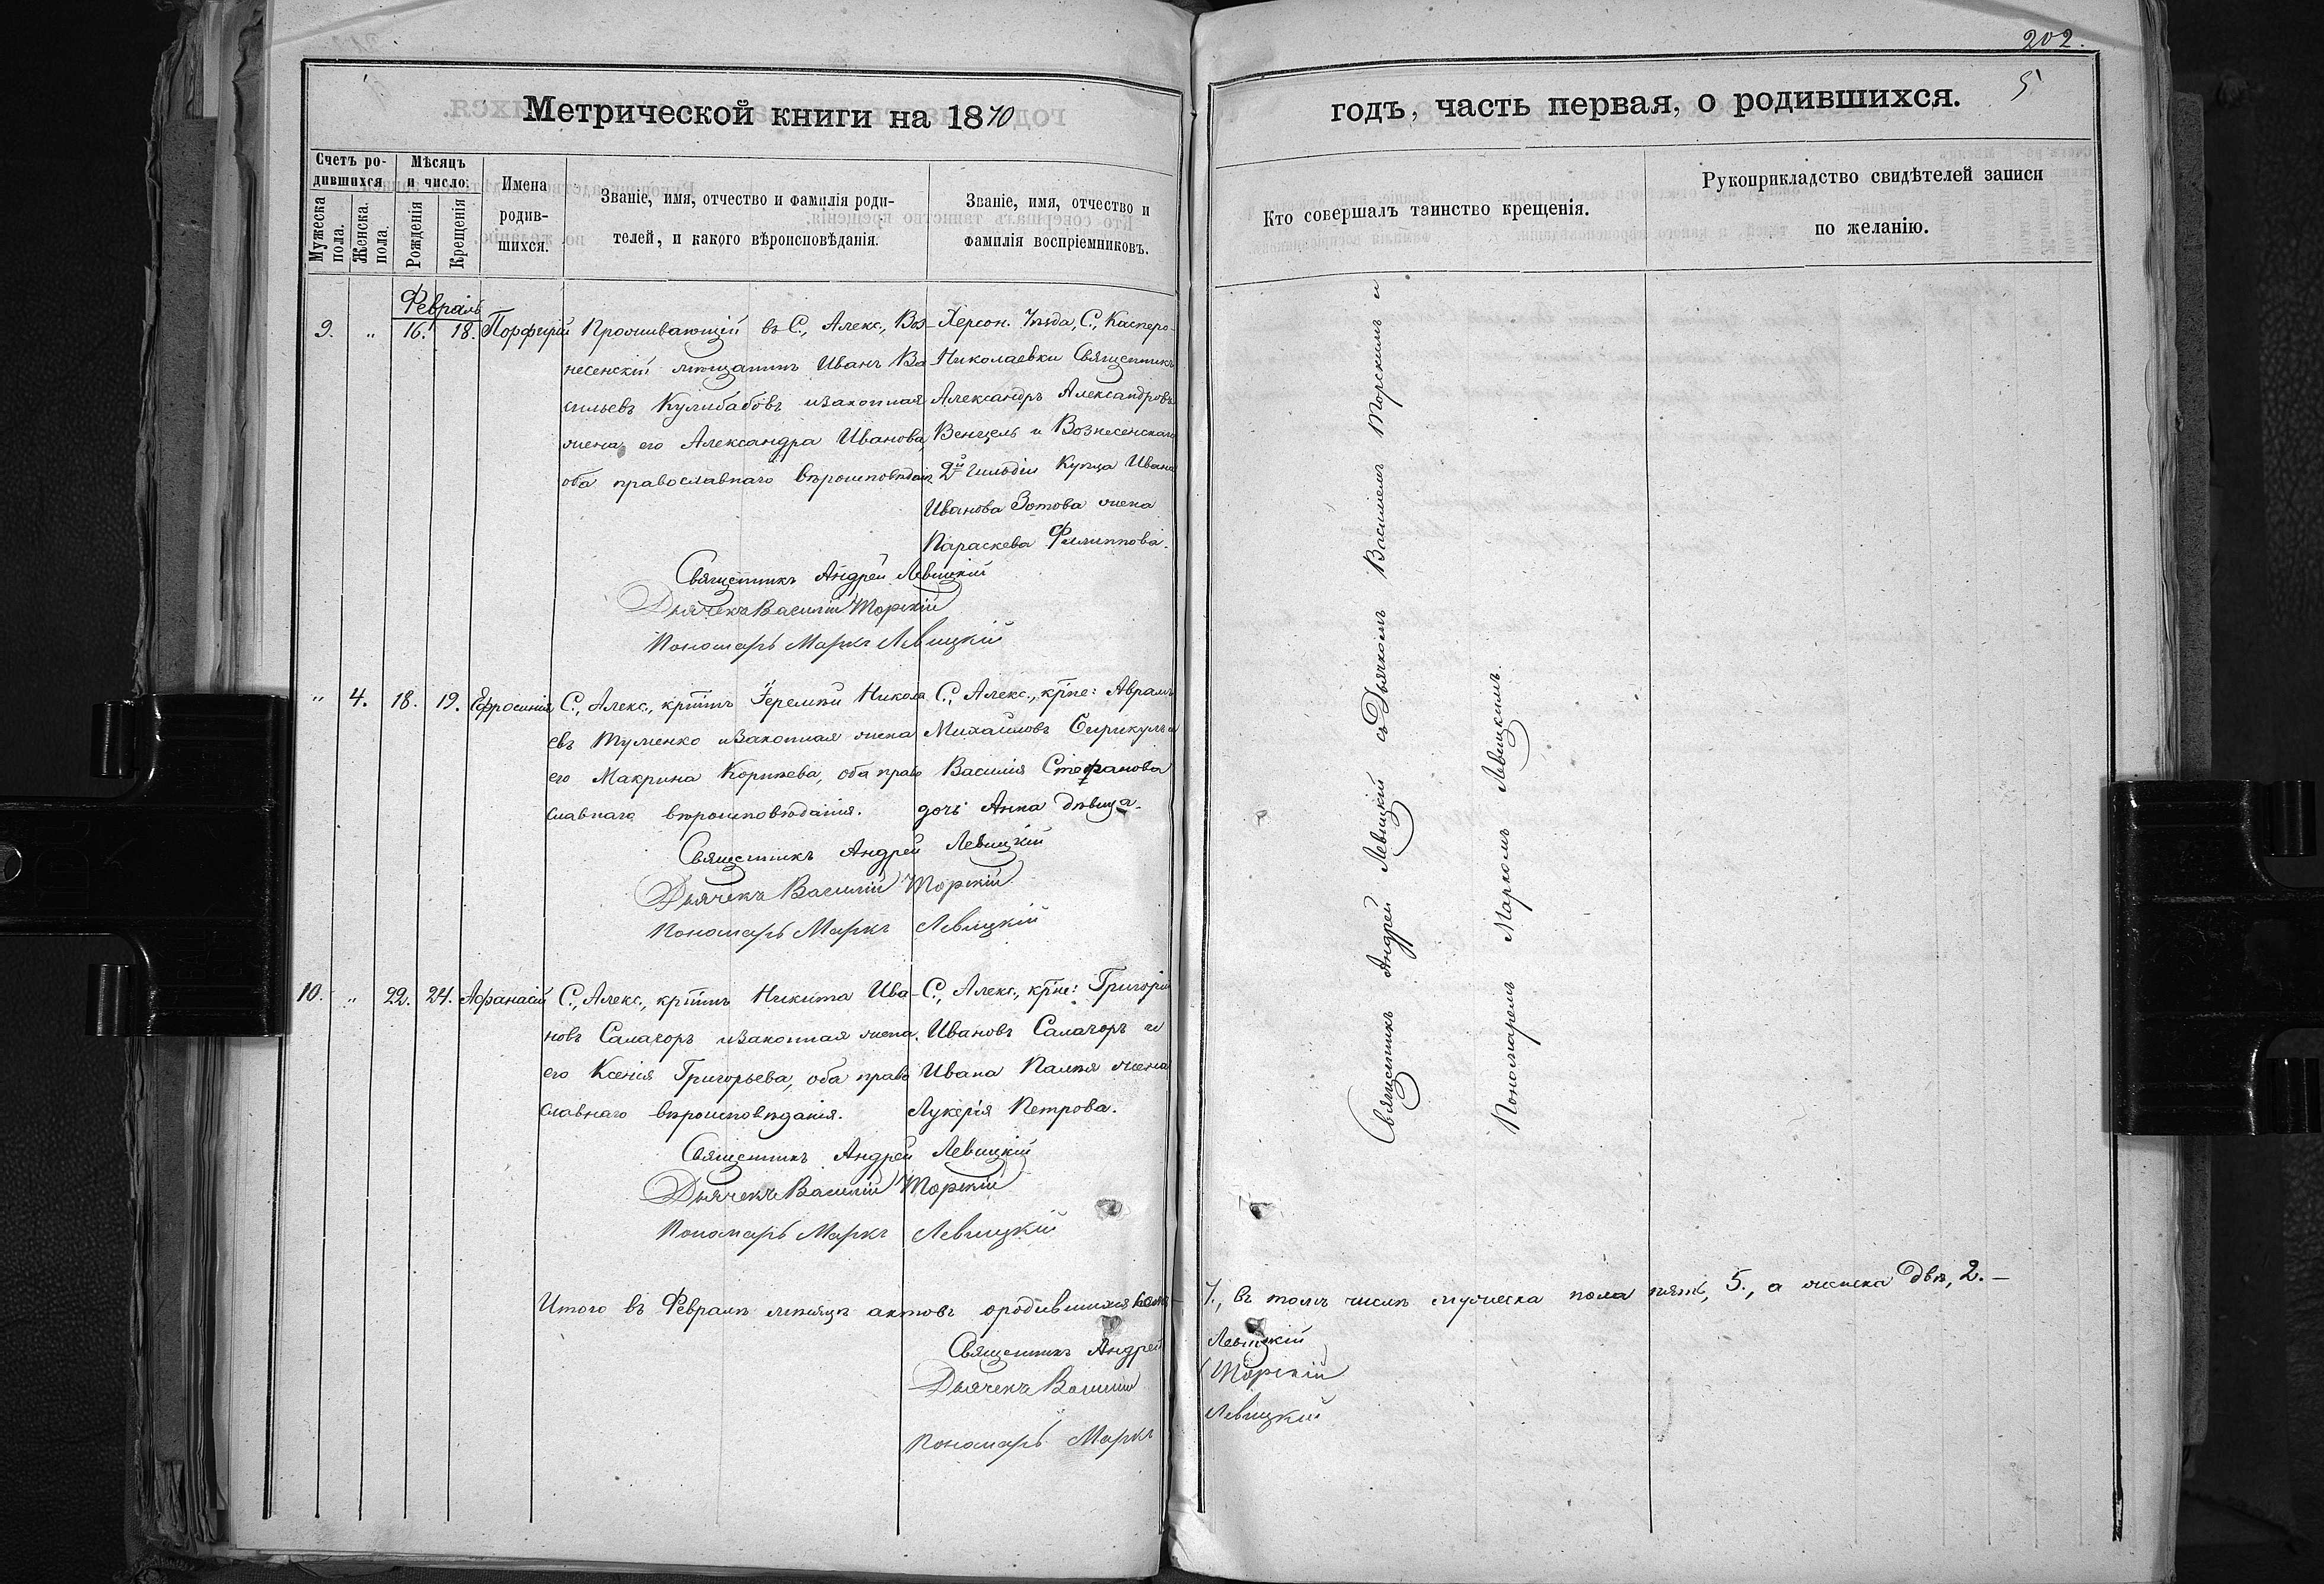 202.
5
Метрической книги на 1870
годъ, часть первая, о родившихся.
Счетъ ро-
дившихся
Мѣсяцъ
и число.
Мужеска пола.
Женска. пола.
Рожденія
Крещенія
Имена
родив-
шихся.
Званіе, имя, отчество и фамилія роди-
телей, и какого вѣроисповѣданія.
Званіе, имя, отчество и
фамилія воспріемниковъ.
Кто совершалъ таинство крещенія.
Рукоприкладство свидѣтелей записи
по желанію.
Февраль
9. " 16. 18. Порфирій
Проживающій въ С., Алекс., Воз-
несенскій мѣщанинъ Иванъ Ва
сильевъ Кулибабовъ изаконная
жена его Александра Иванова,
оба православнаго вѣроисповѣдан.
Херсон. Уѣзда, С., Касперо-
Николаевки Священникъ
Александръ Александровъ
Венцель и Вознесенскаго
2й гильдіи Купца Ивана
Иванова Зотова жена
Параскева Филиппова.
Священникъ Андрей Левицкій
Дьячекъ Василій Торскій
Пономарь Маркъ Левицкій
" 4. 18. 19. Ефросинія
С., Алекс., крттнъ Іеремій Никола
евъ Туменко изаконная жена
его Макрина Корнѣева, оба право
славнаго вѣроисповѣданія.
С., Алекс., крне: Аврамъ
Михаиловъ Сирикулъ и
Василія Стефанова
дочь Анна дѣвица.
Священникъ Андрей Левицкій
Дьячекъ Василій Торскій
Пономарь Маркъ Левицкій
10. " 22. 24. Афанасій
С., Алекс., крттнъ Никита Ива-
новъ Салагоръ изаконная жена
его Ксенія Григорьева, оба право
славнаго вѣроисповѣданія.
С., Алекс., крне: Григорій
Ивановъ Салагоръ и
Ивана Палѣя жена
Лукерія Петрова.
Священникъ Андрей Левицкій
Дьячекъ Василій Торскій
Пономарь Маркъ Левицкій
Священникъ Андрей Левицкій съ Дьячкомъ Василіемъ Торскимъ и
Пономаремъ Маркомъ Левицкимъ.
Итого въ Февралѣ мѣсяцѣ актовъ ородившихся семь 7., въ томъ числѣ мужеска пола пять, 5., а женска двѣ, 2.—
Священникъ Андрей Левицкій
Дьячекъ Василій Торскій
Пономарь Маркъ Левицкій